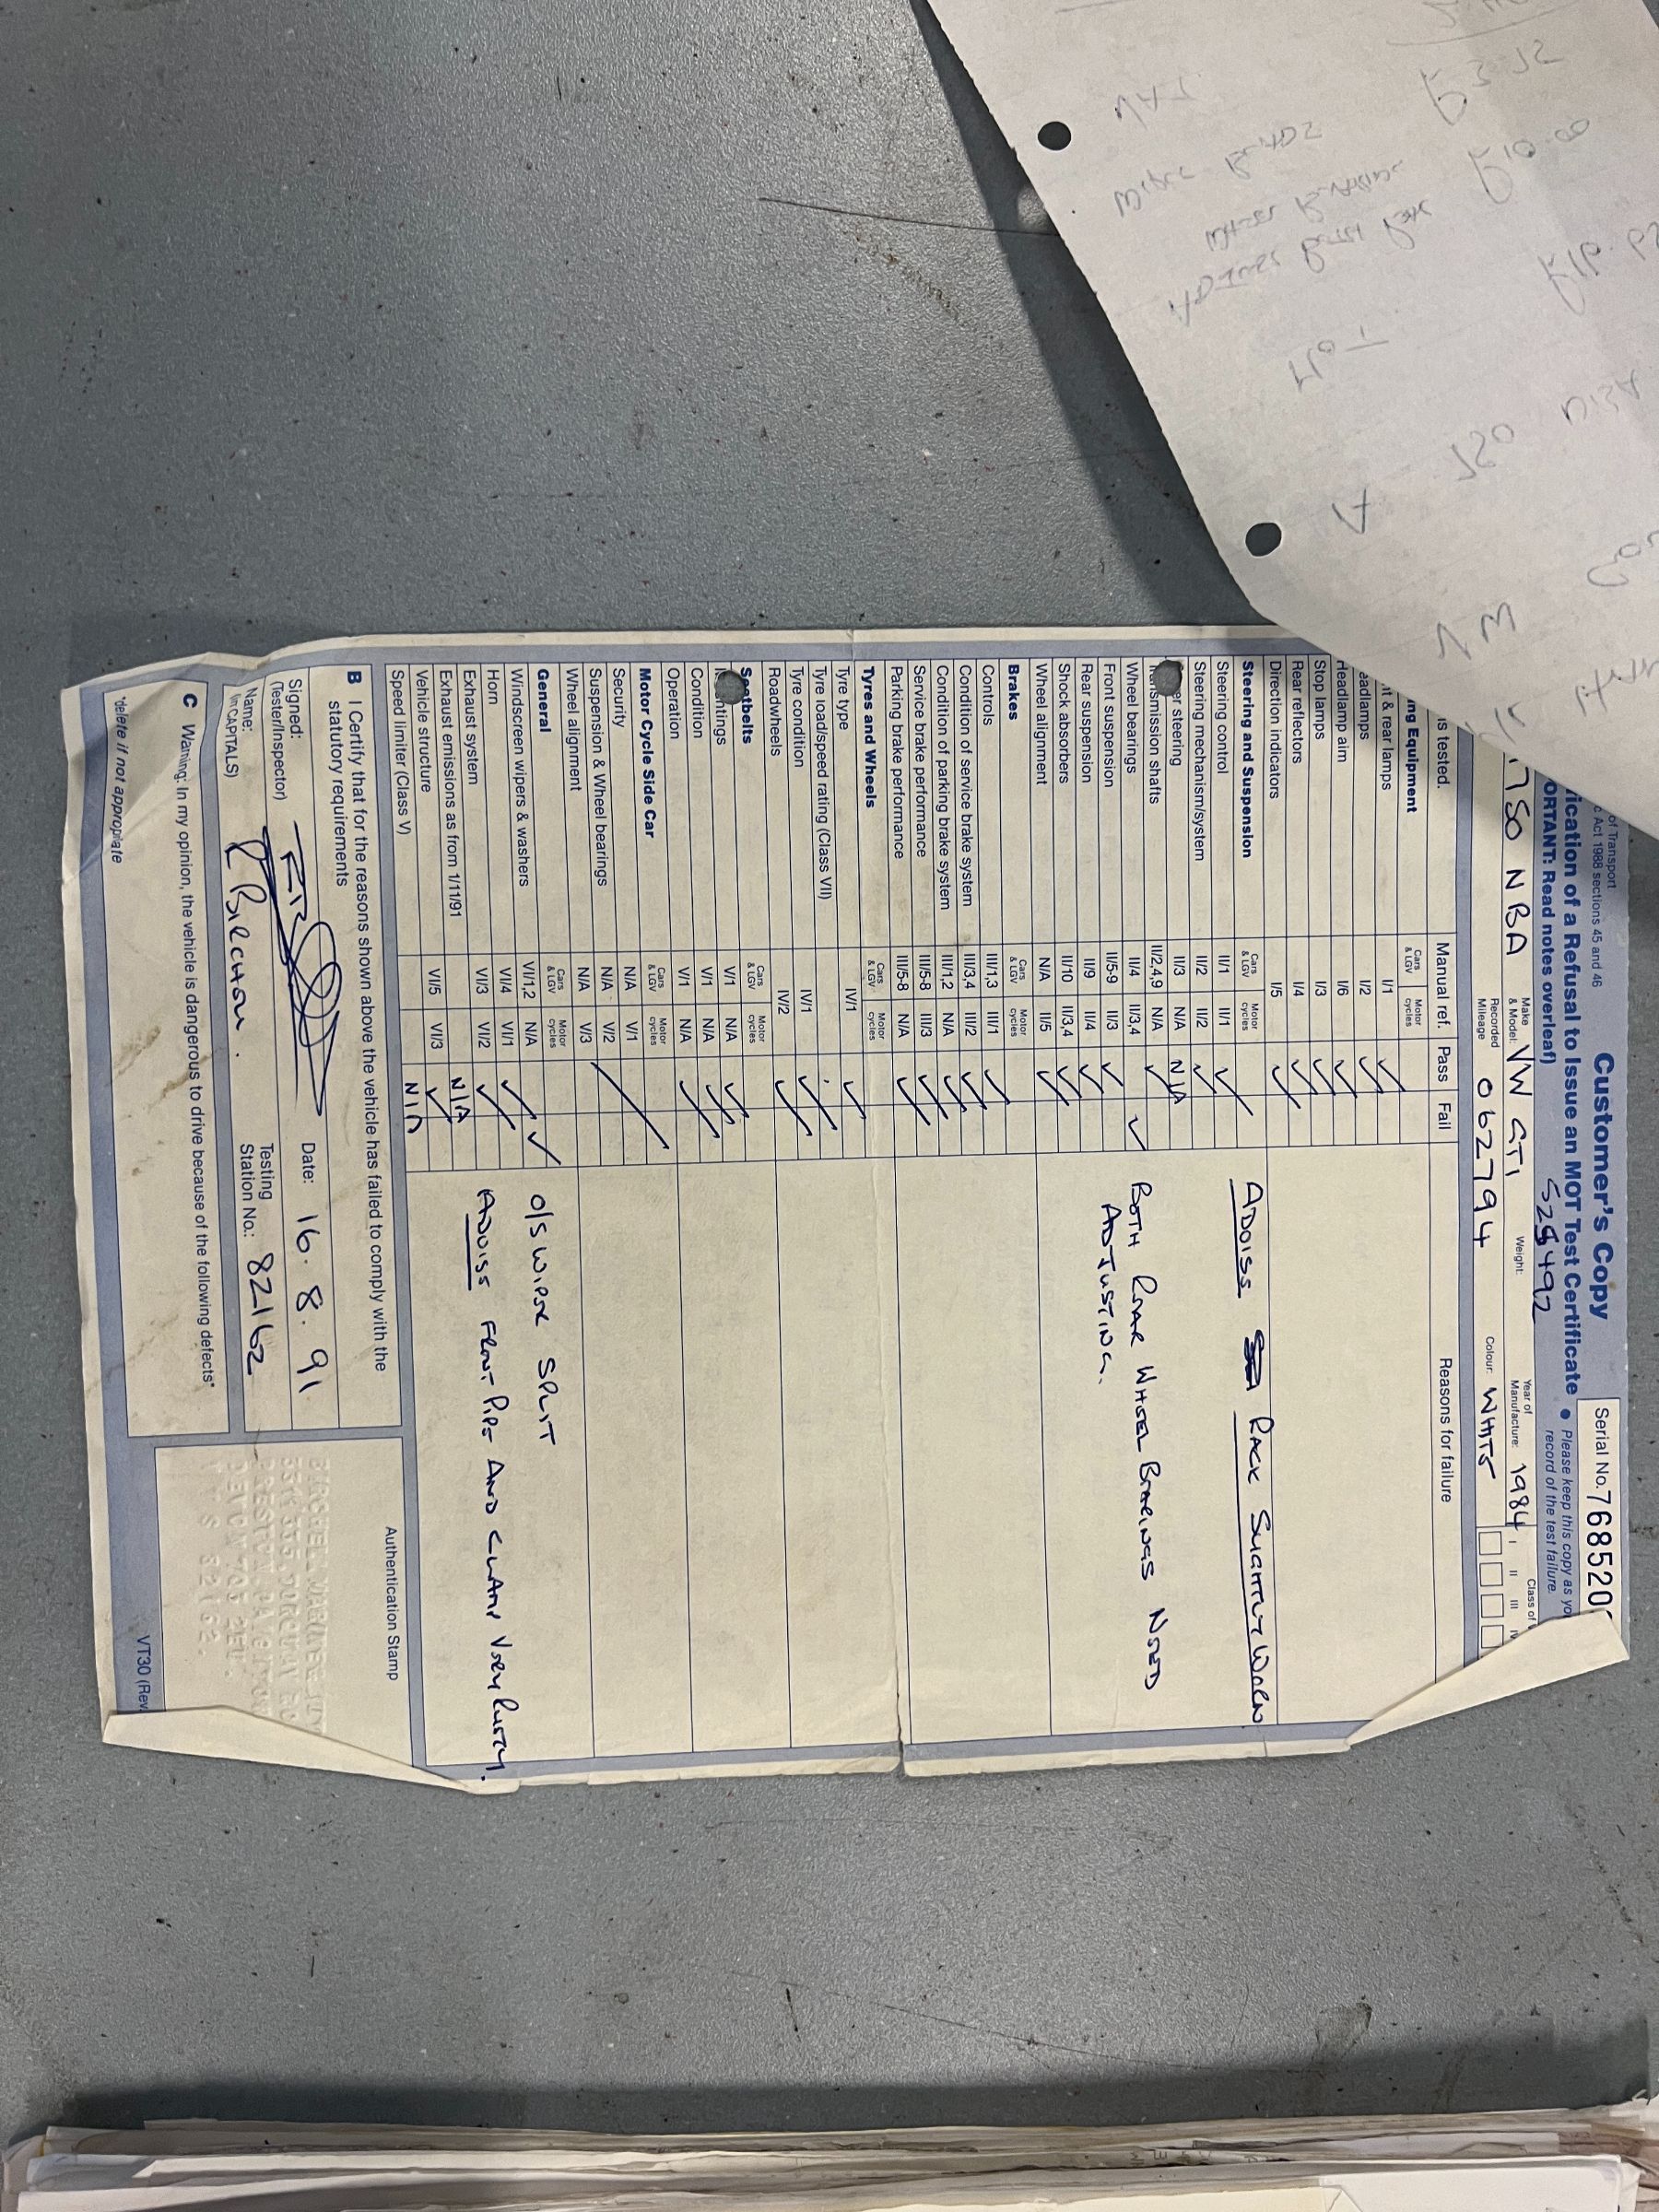 Customer's Copy
Serial No. 768520
of Transport
Act 1988 sections 45 and 46
ication of a Refusal to Issue an MOT Test Certificate
ORTANT: Read notes overleaf)
• Please keep this copy as yo
record of the test failure.
528492
750 NBA
Make & Model: VW GTI
Weight:
Year of Manufacture: 1984
Class of
I II III IV
Recorded Mileage 062794
Colour: WHITE
is tested.
Manual ref. Pass Fail Reasons for failure
ng Equipment Cars & LGV Motor cycles
t & rear lamps I/1 ✓
eadlamps I/2 ✓
Headlamp aim I/6 ✓
Stop lamps I/3 ✓
Rear reflectors I/4 ✓
Direction indicators I/5 ✓
Steering and Suspension Cars & LGV Motor cycles
ADDISE RACK SLIGHTLY WORN
Steering control II/1 II/1 ✓
Steering mechanism/system II/2 II/2 ✓
er steering II/3 N/A N/A
nsmission shafts II/2,4,9 N/A ✓
Wheel bearings II/4 II/3,4 ✓ BOTH REAR WHEEL BEARINGS NEED
ADJUSTING.
Front suspension II/5-9 II/3 ✓
Rear suspension II/9 II/4 ✓
Shock absorbers II/10 II/3,4 ✓
Wheel alignment N/A II/5 ✓
Brakes Cars & LGV Motor cycles
Controls III/1,3 III/1 ✓
Condition of service brake system III/3,4 III/2 ✓
Condition of parking brake system III/1,2 N/A ✓
Service brake performance III/5-8 III/3 ✓
Parking brake performance III/5-8 N/A ✓
Tyres and Wheels Cars & LGV Motor cycles
Tyre type IV/1 ✓
Tyre load/speed rating (Class VII)
Tyre condition IV/1 ✓
Roadwheels IV/2 ✓
Seatbelts Cars & LGV Motor cycles
ntings V/1 N/A ✓
Condition V/1 N/A ✓
Operation V/1 N/A ✓
Motor Cycle Side Car Cars & LGV Motor cycles
Security N/A V/1
Suspension & Wheel bearings N/A V/2
Wheel alignment N/A V/3
General Cars & LGV Motor cycles
Windscreen wipers & washers VI/1,2 N/A ✓ O/S WIPER SPLIT
Horn VI/4 VI/1 ✓
Exhaust system VI/3 VI/2 ✓ ADDISE FRONT PIPE AND CLAMP VERY RUSTY.
Exhaust emissions as from 1/11/91 N/A
Vehicle structure VI/5 VI/3 ✓
Speed limiter (Class V) N/A
B I Certify that for the reasons shown above the vehicle has failed to comply with the
statutory requirements
Authentication Stamp
Signed:
(Tester/Inspector)
Date: 16.8.91
Name: R BIRCHAM.
(in CAPITALS)
Testing Station No.: 82162
C Warning: In my opinion, the vehicle is dangerous to drive because of the following defects*
*delete if not appropriate
VT30 (Rev
£3.52
£10.00
MoT